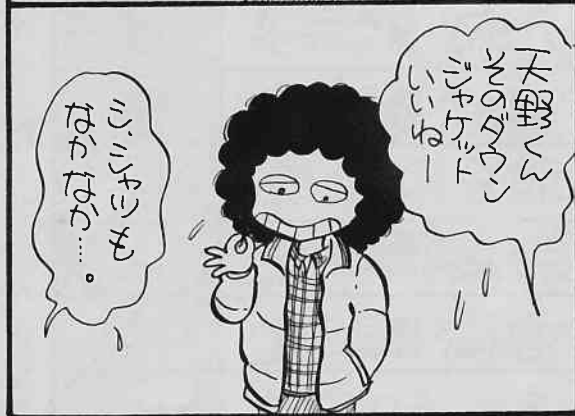 天野くん
そのダウン
ジャケット
いいねー
シ、シャツも
なかなか……。